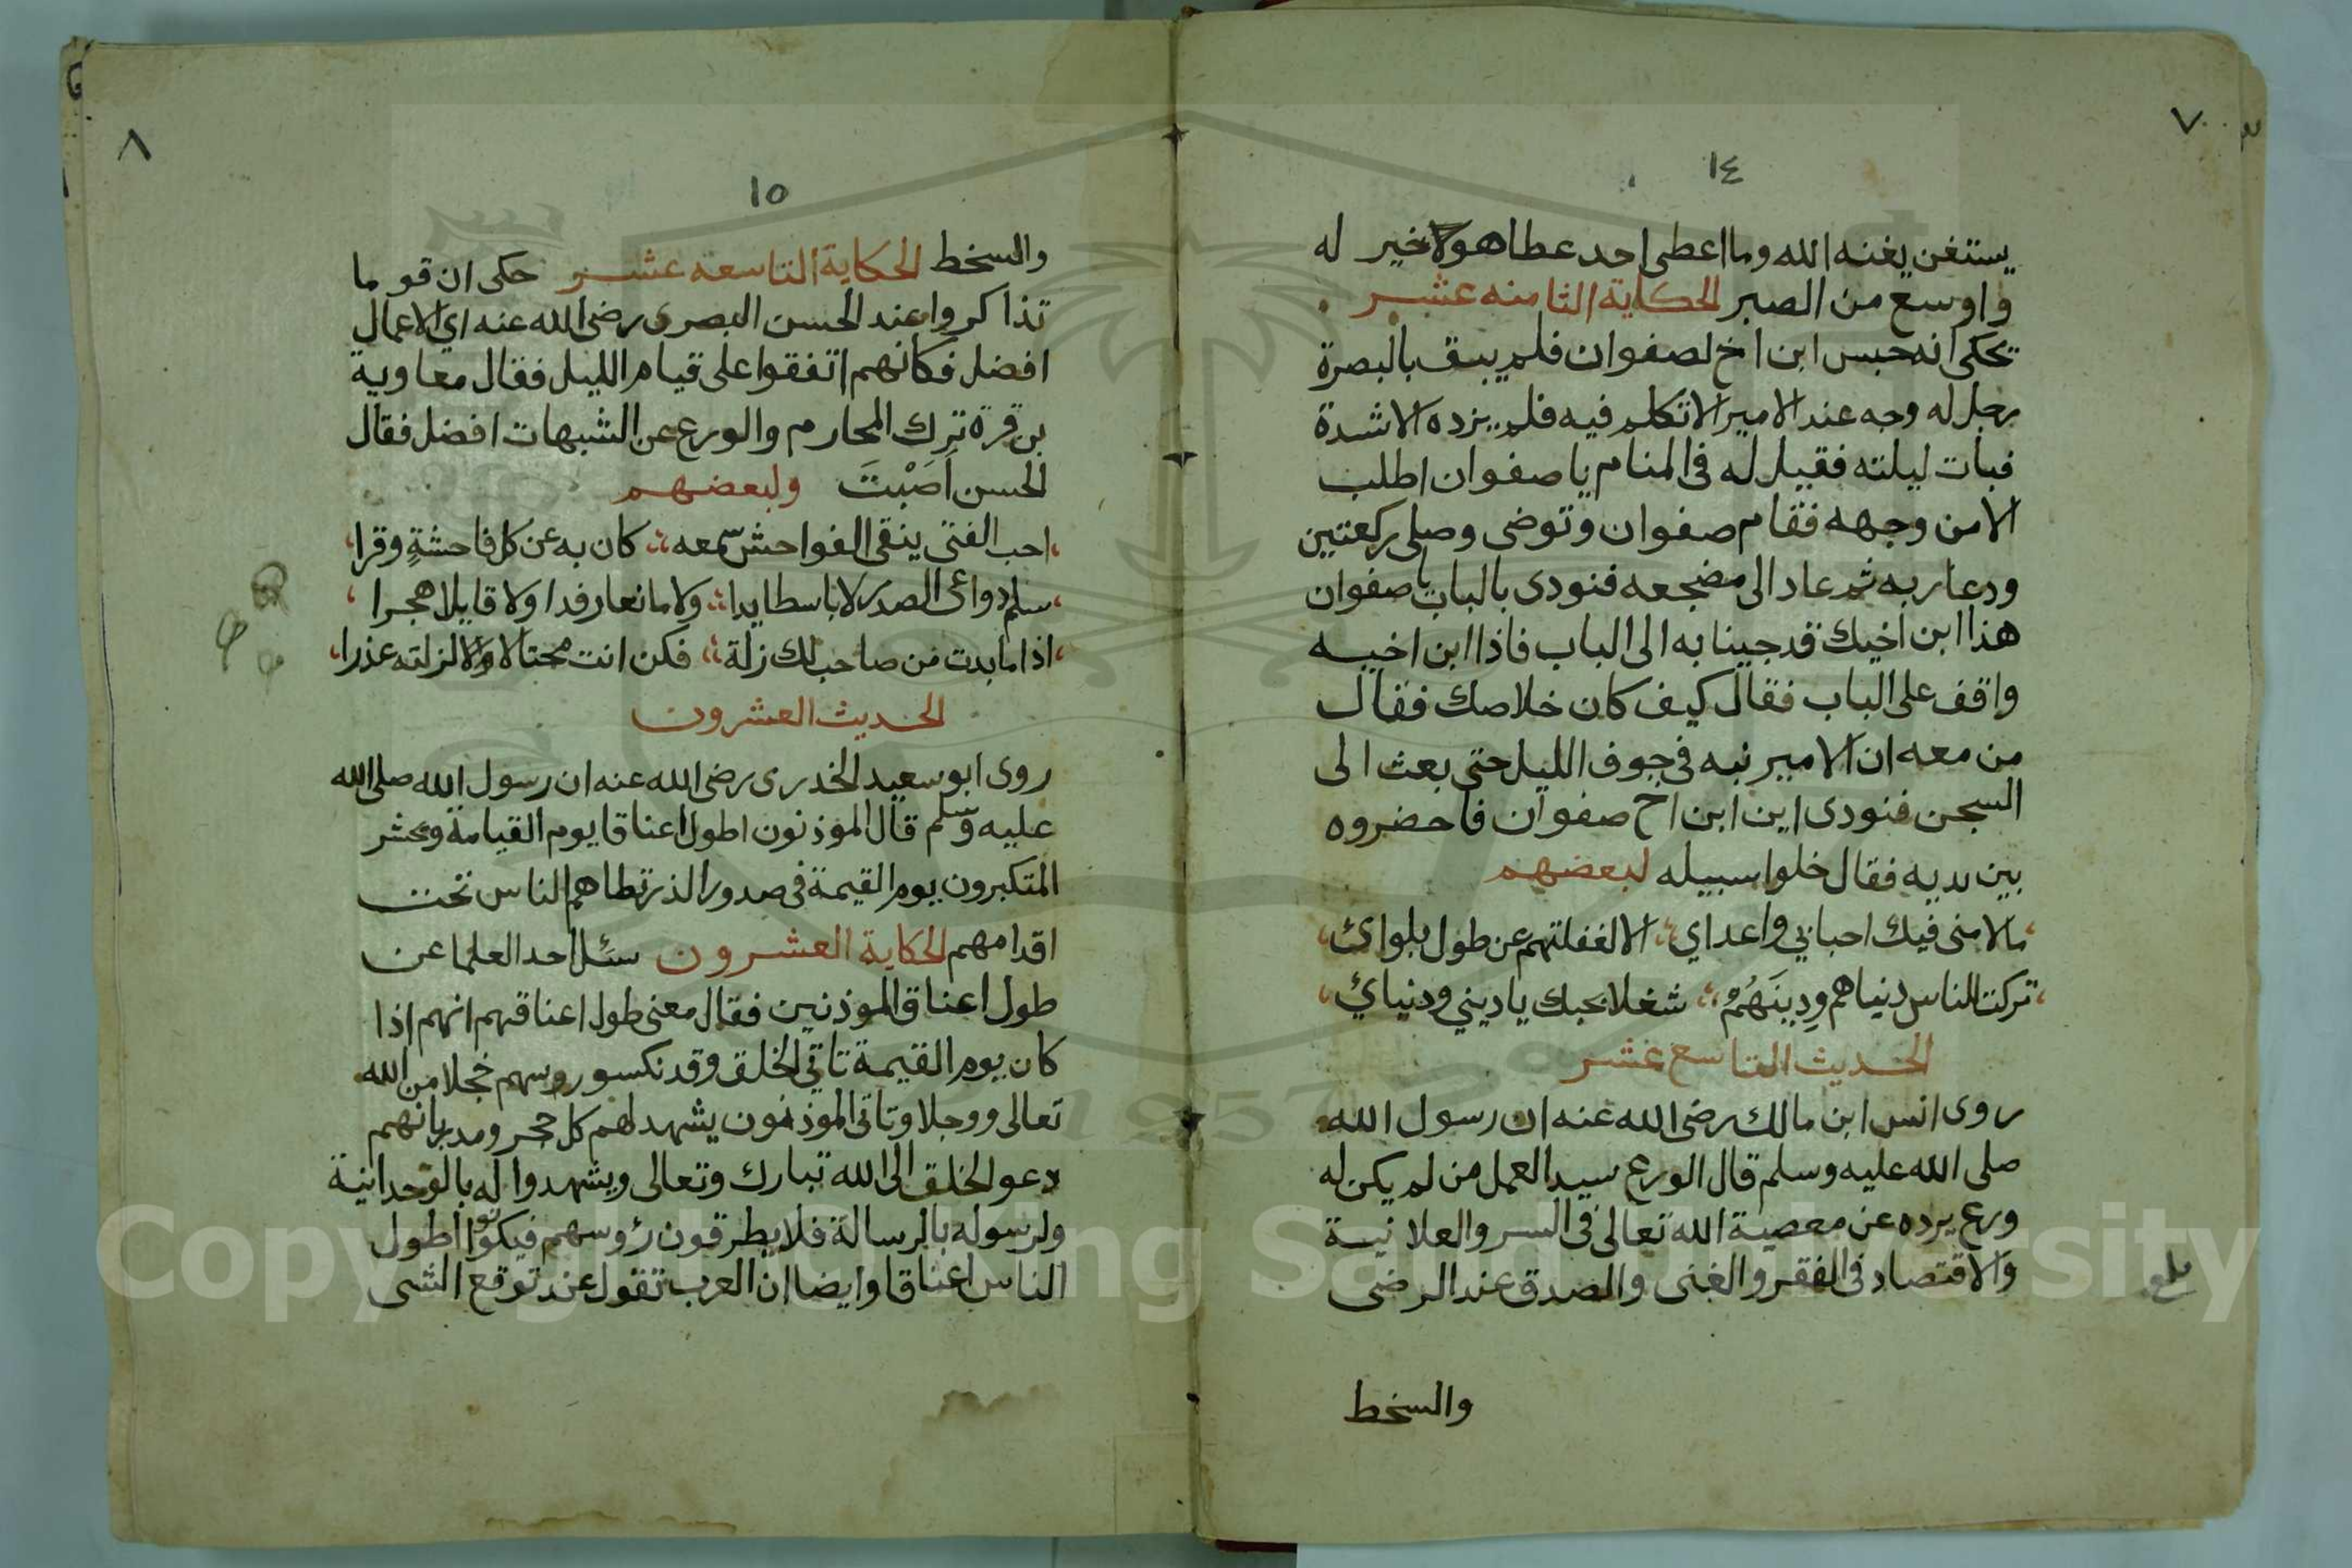 ٧
١٤
يستغن يغنه الله وما اعطى احد عطا هو خير له
واوسع من الصبر الحكاية الثامنه عشر
تحكى انه حبس ابن اخ لصفوان فلم يبق بالبصرة
رجل له وجه عند الامير الا تكلم فيه فلم يزده الا شدة
فبات ليلته فقيل له فى المنام يا صفوان اطلب
الامن وجهه فقام صفوان وتوضى وصلى ركعتين
ودعا ربه ثم عاد الى مضجعه فنودى بالباب يا صفوان
هذا ابن اخيك قد جينا به الى الباب فاذا ابن اخيه
واقف على الباب فقال كيف كان خلاصك فقال
من معه ان الامير نبه فى جوف الليل حتى بعث الى
السجن فنودى اين ابن اخ صفوان فاحضروه
بين يديه فقال خلوا سبيله لبعضهم
ما لامنى فيك احبابي واعداي الا لغفلتهم عن طول بلوائ
تركت الناس دنياهم ودِينَهُمْ شغلا بحبك يا ديني ودنيائ
الحديث التاسع عشر
روى انس ابن مالك رضى الله عنه ان رسول الله
صلى الله عليه وسلم قال الورع سيد العمل من لم يكن له
ورع يرده عن معصية الله تعالى فى السر والعلانية
والاقتصاد فى الفقر والغنى والصدق عند الرضى
بلغ
والسخط
٨
١٥
والسخط الحكاية التاسعه عشر حكى ان قوما
تذاكروا عند الحسن البصرى رضى الله عنه اي الاعمال
افضل فكانهم اتفقوا على قيام الليل فقال معاوية
بن قرة ترك المحارم والورع عن الشبهات افضل فقال
الحسن اَصَبْتَ ولبعضهم
احب الفتى ينقى الفواحش سمعه كان به عن كل فاحشةٍ وقرا
سلم دواعى الصدر لا باسطا يدا ولا مانعا رفدا ولا قايلا هجرا
اذا ما بدت من صاحب لك زلة فكن انت محتالا لزلته عذرا
الحديث العشرون
روى ابو سعيد الخدرى رضى الله عنه ان رسول الله صلى الله
عليه وسلم قال الموذنون اطول اعناقا يوم القيامة ومحشر
المتكبرون يوم القيمة فى صدور الذر تطاهم الناس تحت
اقدامهم الحكاية العشرون سئل احد العلما عن
طول اعناق الموذنين فقال معنى طول اعناقهم انهم اذا
كان يوم القيمة تاتي الخلق وقد نكسو روسهم خجلا من الله
تعالى ووجلا وتاتى الموذنون يشهد لهم كل حجر ومدر بانهم
دعو الخلق الى الله تبارك وتعالى ويشهدوا له بالوحدانية
ولرسوله بالرسالة فلا يطرقون رؤوسهم فيكونوا اطول
الناس اعناقا وايضا ان العرب تقول عند توقع الشى
Copyright © King Saud University
1957